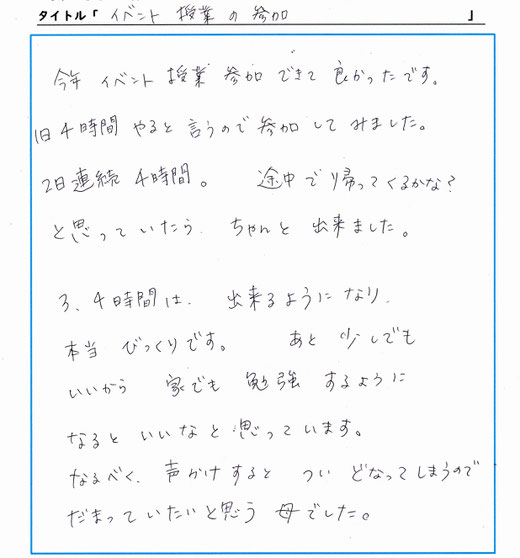 タイトル「イベント 授業 の 参加」
今年 イベント 授業 参加 できて 良かったです。
1日4時間 やると 言うので 参加して みました。
2日連続 4時間。 途中で 帰ってくるかな?
と思っていたら、ちゃんと 出来ました。
3、4時間は、出来るように なり、
本当 びっくりです。 あと 少しでも
いいから 家でも 勉強 するように
なると いいなと 思っています。
なるべく、声かけすると つい どなってしまうので
だまっていたいと思う 母でした。